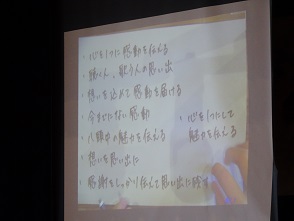 ・心を1つに感動を伝える
・聴く人、歌う人の思い出
・想いを込めて感動を届ける
・今までにない感動
・八頭中の魅力を伝える
・想いを思い出に
・感謝をしっかり伝えて思い出に残す
・心を1つにして
魅力を伝える